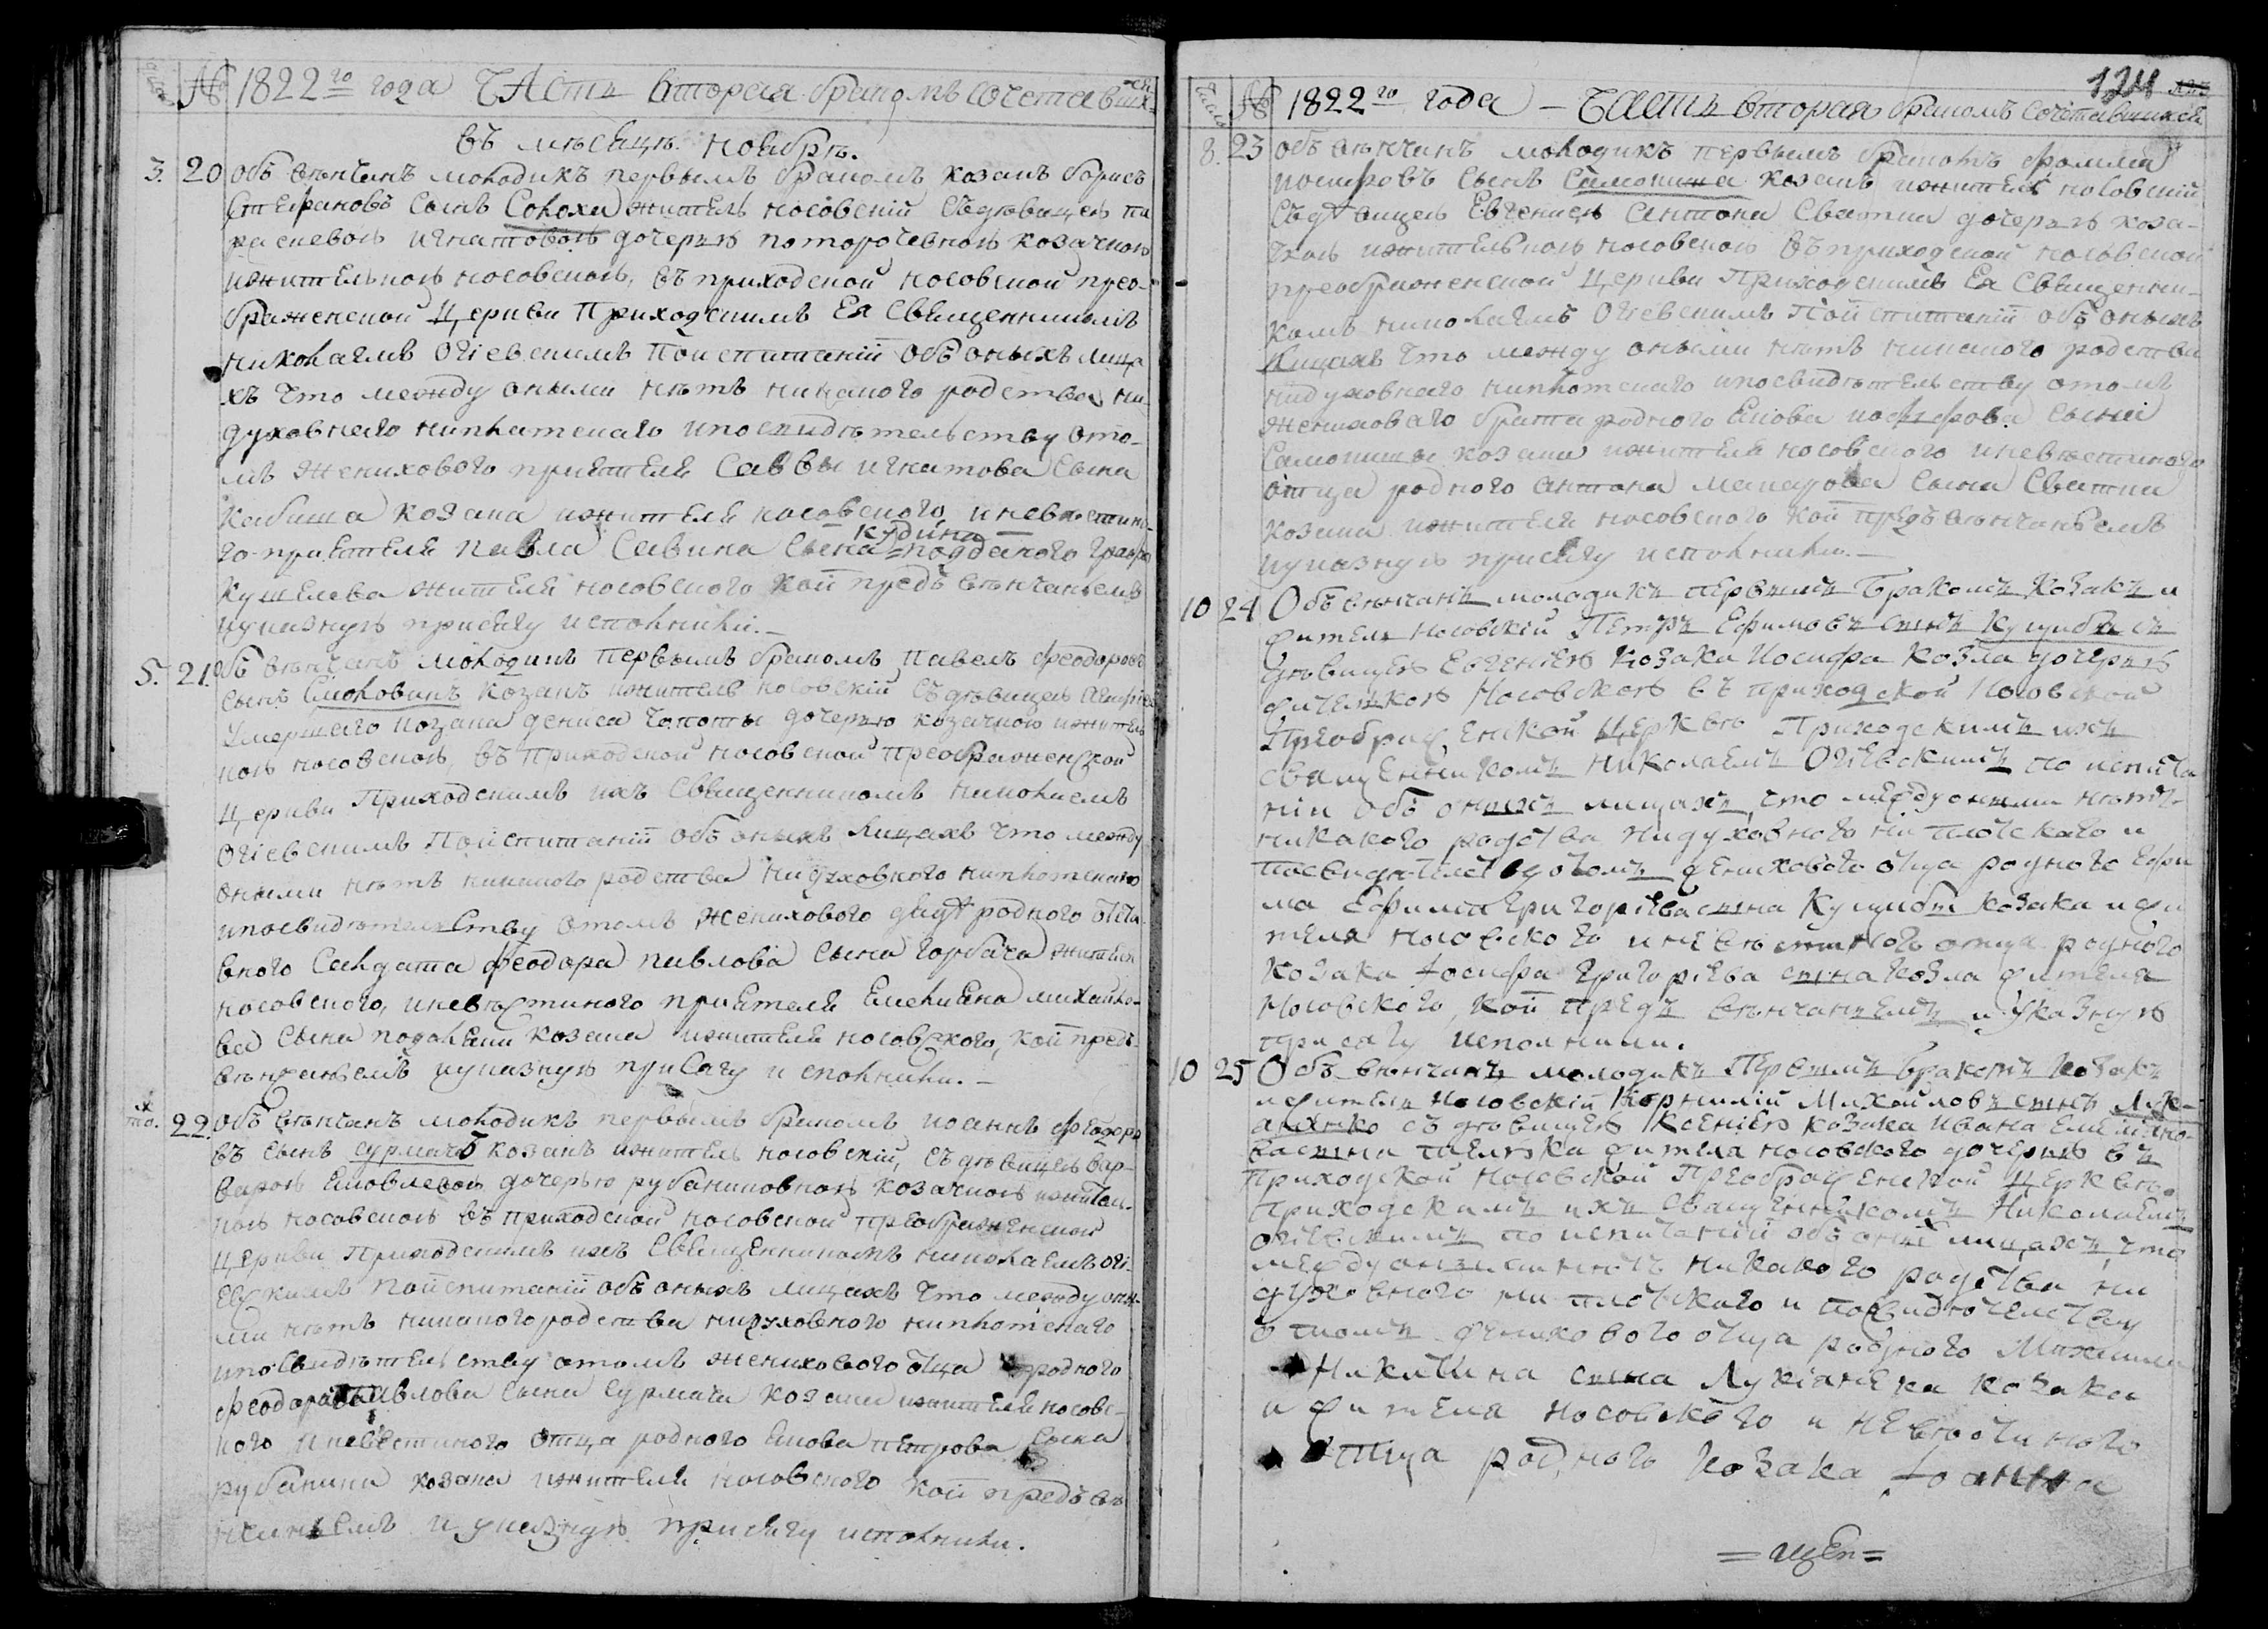 № 1822го года Часть вторая бракомъ сочетавших-ся
въ месяце ноябрѣ.
3. 20 Обвѣнчанъ молодикъ первымъ бракомъ козакъ борисъ
Стефановъ сынъ Солоха житель носовскій съ дѣвицею па
расковою игнатовою дочерью поторочевною козачкою
и жительною носовскою, въ приходской носовской прео-
браженской церкви Приходскимъ Ея Священникомъ
николаемъ Огіевскимъ По испитаній объ оныхъ лица
хъ что между оными нѣтъ никакого родства ни
духовнаго ни плотскаго и по свидѣтельству о то-
мъ женихового пріятеля Саввы игнатова Сына
Кабыша козака и жителя носовского, и невѣстино-
го пріятеля павла Савина Сына Кудина подданого графа
Кушелева жителя носовского кой предъ вѣнчаніемъ
и указную присягу исполнили.—
5. 21. Объ вѣнчанъ молодикъ первымъ бракомъ павелъ феодоровъ
сынъ Смоловикъ козакъ и житель носовскій съ дѣвицею
Умершего козака дениса дочерью козачкою и житель
ною носовскою, въ Приходской носовской преображенской
церкви Приходскимъ ихъ Священникомъ николаемъ
Огіевскимъ По испитаній объ оныхъ лицахъ что между
оными нѣтъ никакого родства ни духовного ни плотского
и по свидѣтельству о томъ женихового родного
Солдата феодора павлова Сына горбача жителя
носовского, и невѣстиного пріятеля Емеліяна михайло-
ва Сына козака и жителя носовского, кой предъ
вѣнчаніемъ и указную присягу исполнили.—
22. Объ вѣнчанъ молодикъ первымъ бракомъ иоаннъ феодоро
въ сынъ сурмачъ козакъ и житель носовский, съ дѣвицею вар-
варою Яковлевою дочерью рубаниковною козачкою и житель-
ною носовскою въ приходской носовской преображенской
церкви Приходскимъ ихъ Священникомъ николаемъ огі-
евскимъ По испитаній объ оныхъ лицахъ что между оны-
ми нѣтъ никакого родства ни духовного ни плотского
и по свидѣтельству о томъ женихового отца родного
феодора павлова Сына Сурмача козака и жителя носовс-
кого и невѣстиного отца родного Якова петрова Сына
рубаника козака и жителя носовского кой предъ вѣ
нчаніемъ и указную присягу исполнили.
124
№ 1822го года — Часть вторая бракомъ Сочетавшихся
8. 23 объ вѣнчанъ молодикъ первымъ бракомъ фома
иосифовъ Сынъ Самойша козакъ и житель носовскій
съ дѣвицею Евгениею Антона Сватка дочерью коза-
чкою и жительною носовскою въ приходской носовской
преображенской Церкви Приходскимъ Ея Священни-
комъ николаемъ Огіевскимъ По испитаній объ оныхъ
Лицахъ что между оными нѣтъ никакого родства
ни духовнаго ни плотского и по свидѣтельству о томъ
женихового брата родного Якова иосифова Сына
козака и жителя носовского и невѣстиного
отца родного антона макарова Сына Сватка
козака и жителя носовского кой предъ вѣнчаніемъ
и указную присягу исполнили.—
10 24 Объ вѣнчанъ молодикъ первымъ Бракомъ Козакъ и
житель носовскій Петръ Ефимовъ сынъ Куцибъ съ
дѣвицею Евгеніею Козака Иосифа Козла дочерью
жительною Носовскою въ приходской Носовской
Преображенской Церкви Приходскимъ ихъ
священникомъ николаемъ Огіевскимъ по испита
ніи объ оныхъ лицахъ, что между оными нѣтъ
никакого родства ни духовного ни плотского и
по свидѣтелству о томъ женихового отца родного Ефи
ма Ефима Григоріева сына Козака и жи
теля носовского и невѣстиного отца родного
Козака Іосифа Григоріева сына Козла жителя
Носовского, кой предъ вѣнчаніемъ и указную
присягу исполнили.
10 25 Объ вѣнчанъ молодикъ Первымъ Бракомъ Козакъ
и житель носовскій Корнилій Михайловъ сынъ Лук-
съ дѣвицею Ксеніею козака ивана Емеліяно-
ва сына жителя носовского дочерью въ
приходской Носовской Преображенской Церкви
Приходскимъ ихъ Священникомъ Николаемъ
огіевскимъ по испитаній объ оныхъ лицахъ, что
между оными нѣтъ никакого родства ни
духовного ни плотского и по свидѣтелству
о томъ женихового отца родного Михаила
Никитина сына Лукіаненка козака
и жителя носовского и невѣстиного
отца родного козака Іоанна